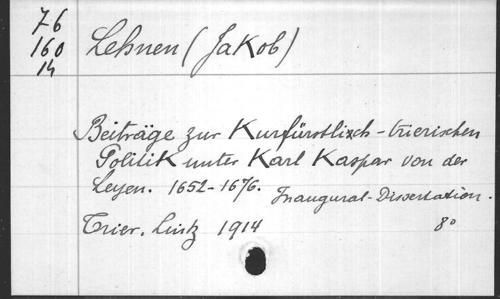 76
160
14
Lehnen (Jakob)
Beiträge zur Kurfürstlich-trierischen
Politik unter Karl Kaspar von der
Leyen. 1652-1676.
Inaugural-Dissertation.
Trier. Lintz 1914
8°